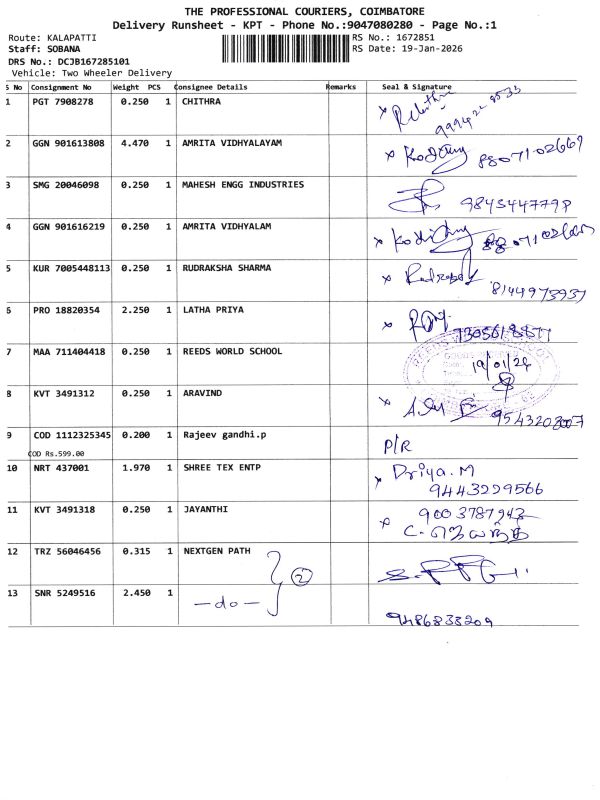 THE PROFESSIONAL COURIERS, COIMBATORE
Delivery Runsheet - KPT - Phone No.:9047080280 - Page No.:1
Route: KALAPATTI
Staff: SOBANA
DRS No.: DCJB167285101
Vehicle: Two Wheeler Delivery
RS No.: 1672851
RS Date: 19-Jan-2026
S No Consignment No Weight PCS Consignee Details Remarks Seal & Signature
1 PGT 7908278 0.250 1 CHITHRA
2 GGN 901613808 4.470 1 AMRITA VIDHYALAYAM 8807102667
3 SMG 20046098 0.250 1 MAHESH ENGG INDUSTRIES
4 GGN 901616219 0.250 1 AMRITA VIDHYALAM
5 KUR 7005448113 0.250 1 RUDRAKSHA SHARMA 8144973937
6 PRO 18820354 2.250 1 LATHA PRIYA
7 MAA 711404418 0.250 1 REEDS WORLD SCHOOL 19/01/26
8 KVT 3491312 0.250 1 ARAVIND
9 COD 1112325345 0.200 1 Rajeev gandhi.p P/R
COD Rs.599.00
10 NRT 437001 1.970 1 SHREE TEX ENTP Driya.M
9443229566
11 KVT 3491318 0.250 1 JAYANTHI 9003787943
12 TRZ 56046456 0.315 1 NEXTGEN PATH 2
13 SNR 5249516 2.450 1 —do—
9486833209